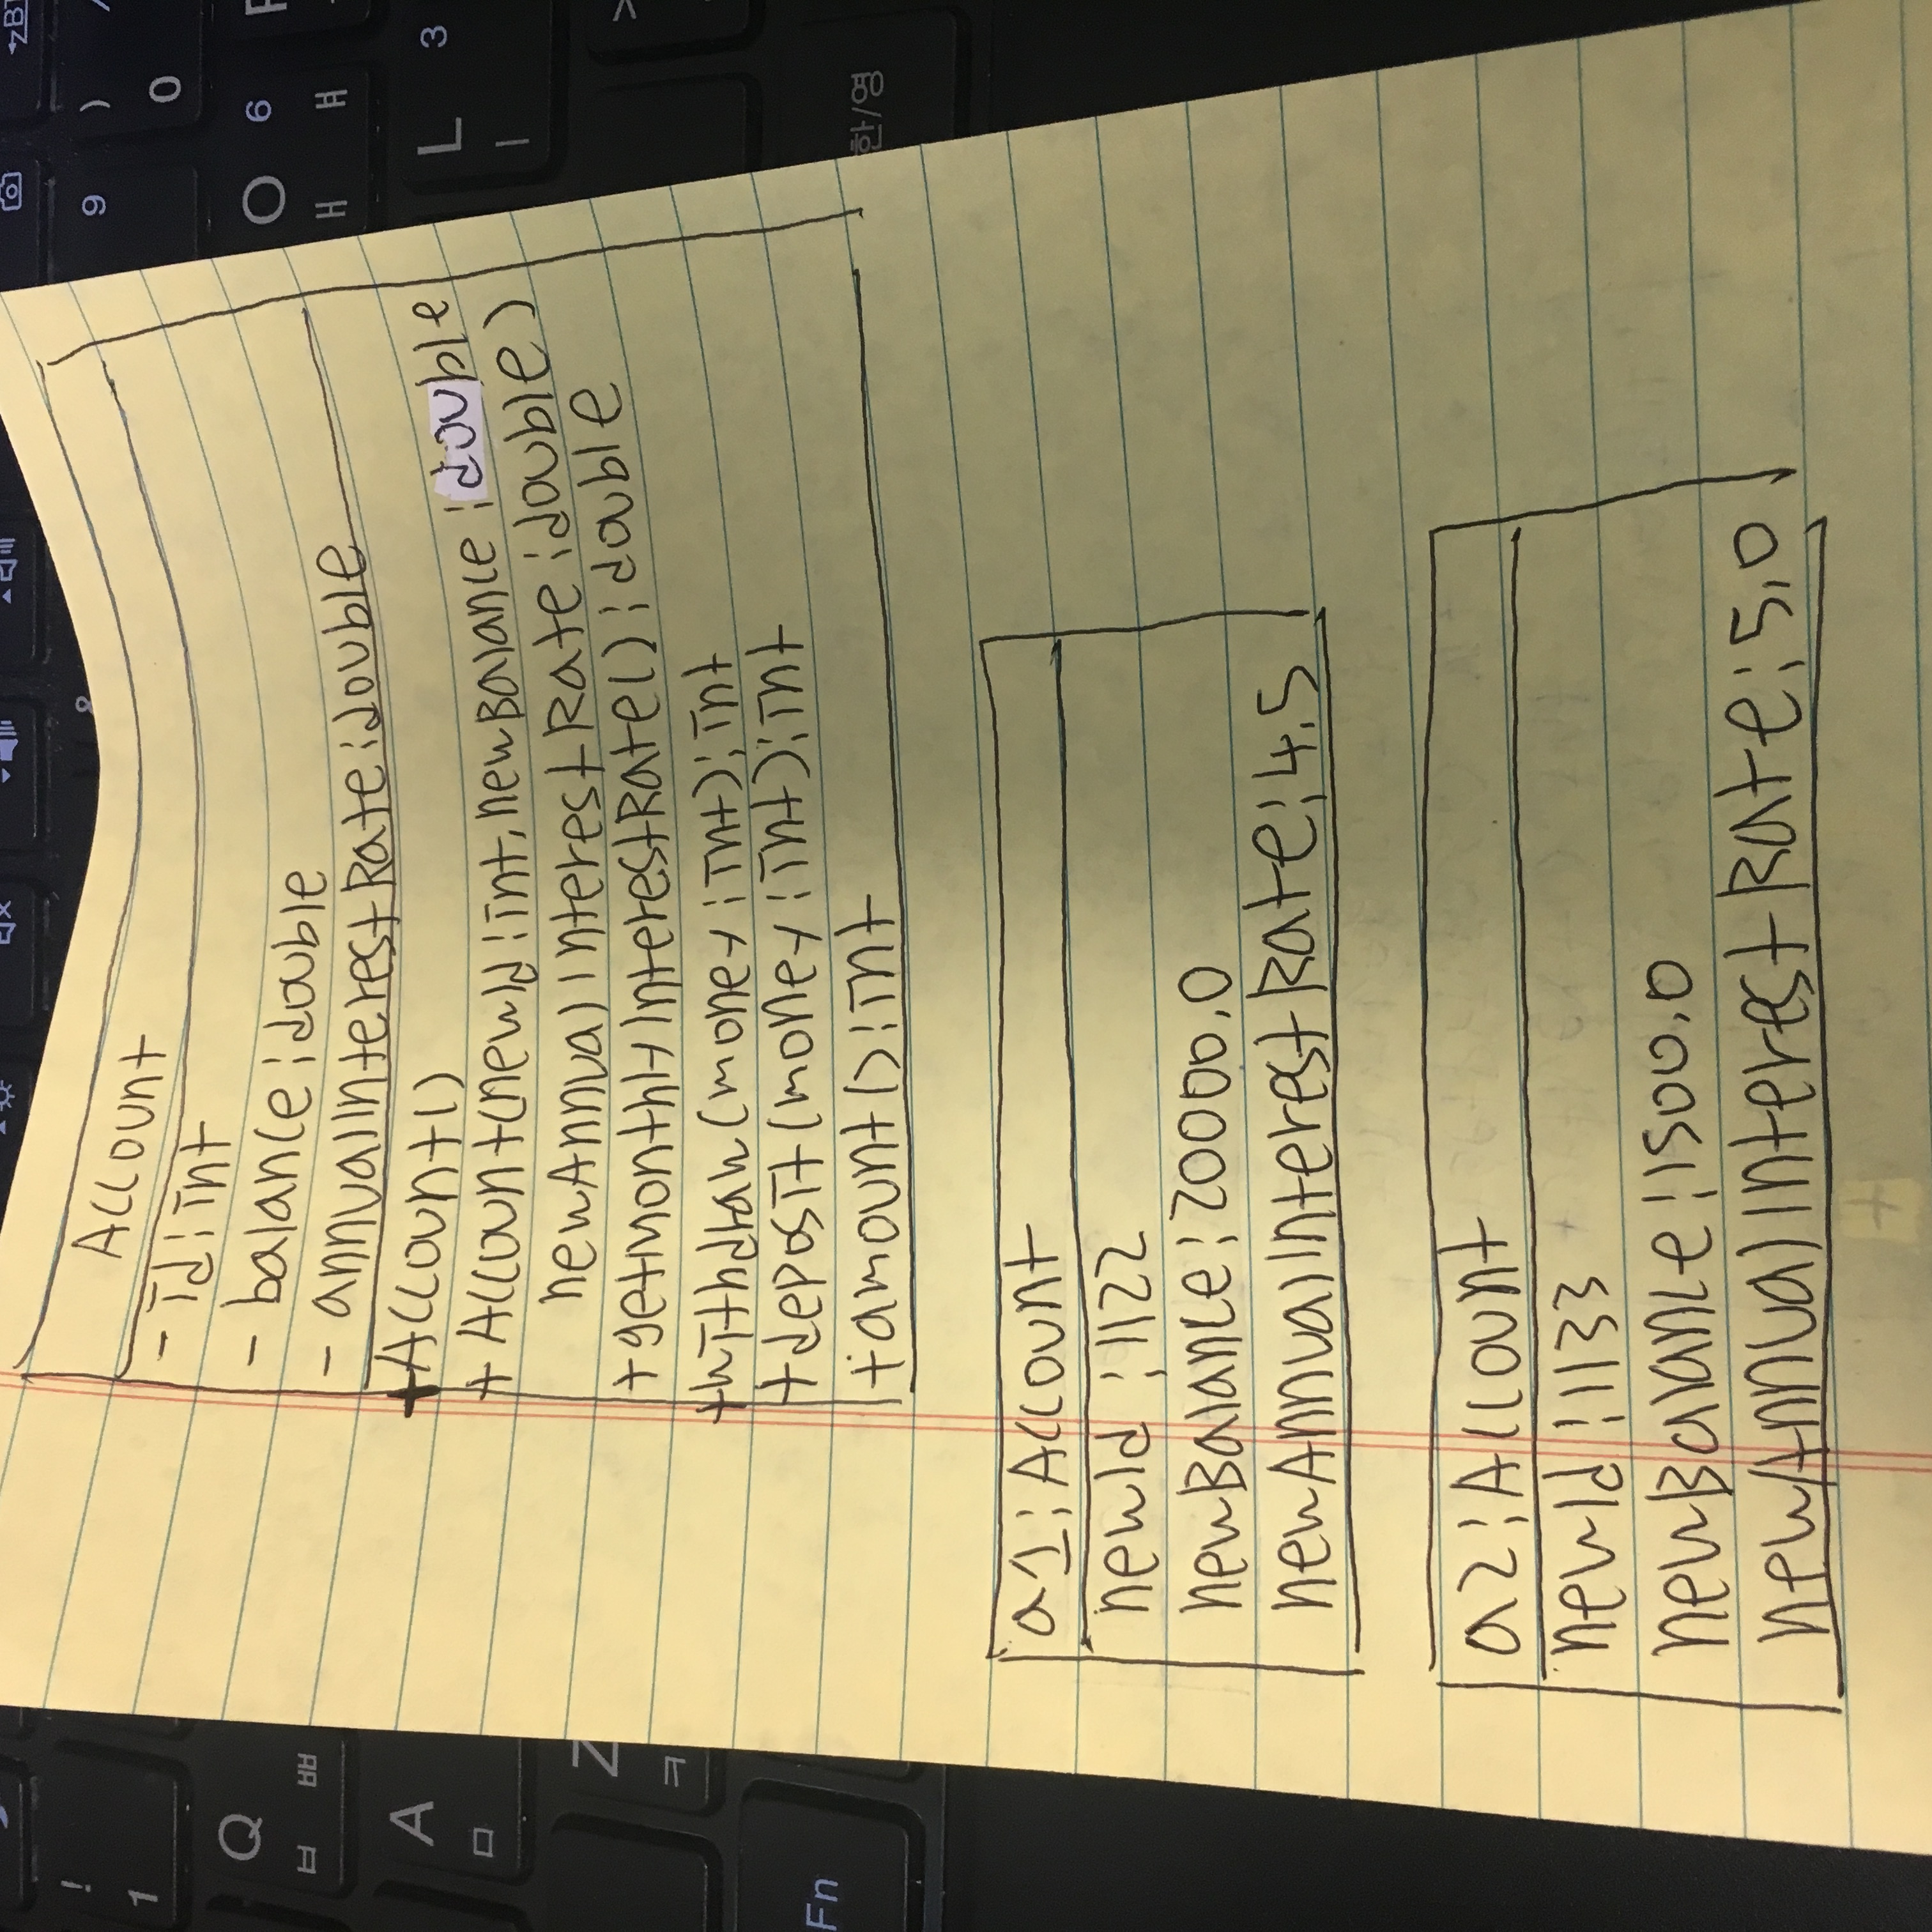 Account
- id : int
- balance : double
- annualInterestRate : double
+Account()
+ Account(newId : int, newBalance : double
newAnnualInterestRate : double)
+getMonthlyInterestRate() : double
+withdraw(money : int) : int
+deposit(money : int) : int
+amount() : int
a1 : Account
newId : 1122
newBalance : 20000.0
newAnnualInterestRate : 4.5
a2 : Account
newId : 1133
newBalance : 1500.0
newAnnualInterestRate : 5.0
!
1
&
9
)
0
Q
ㅂ ㅃ
O 6
ㅐ ㅒ
A
ㅁ
L 3
ㅣ
Z
ㅋ
>
Fn
한/영
+